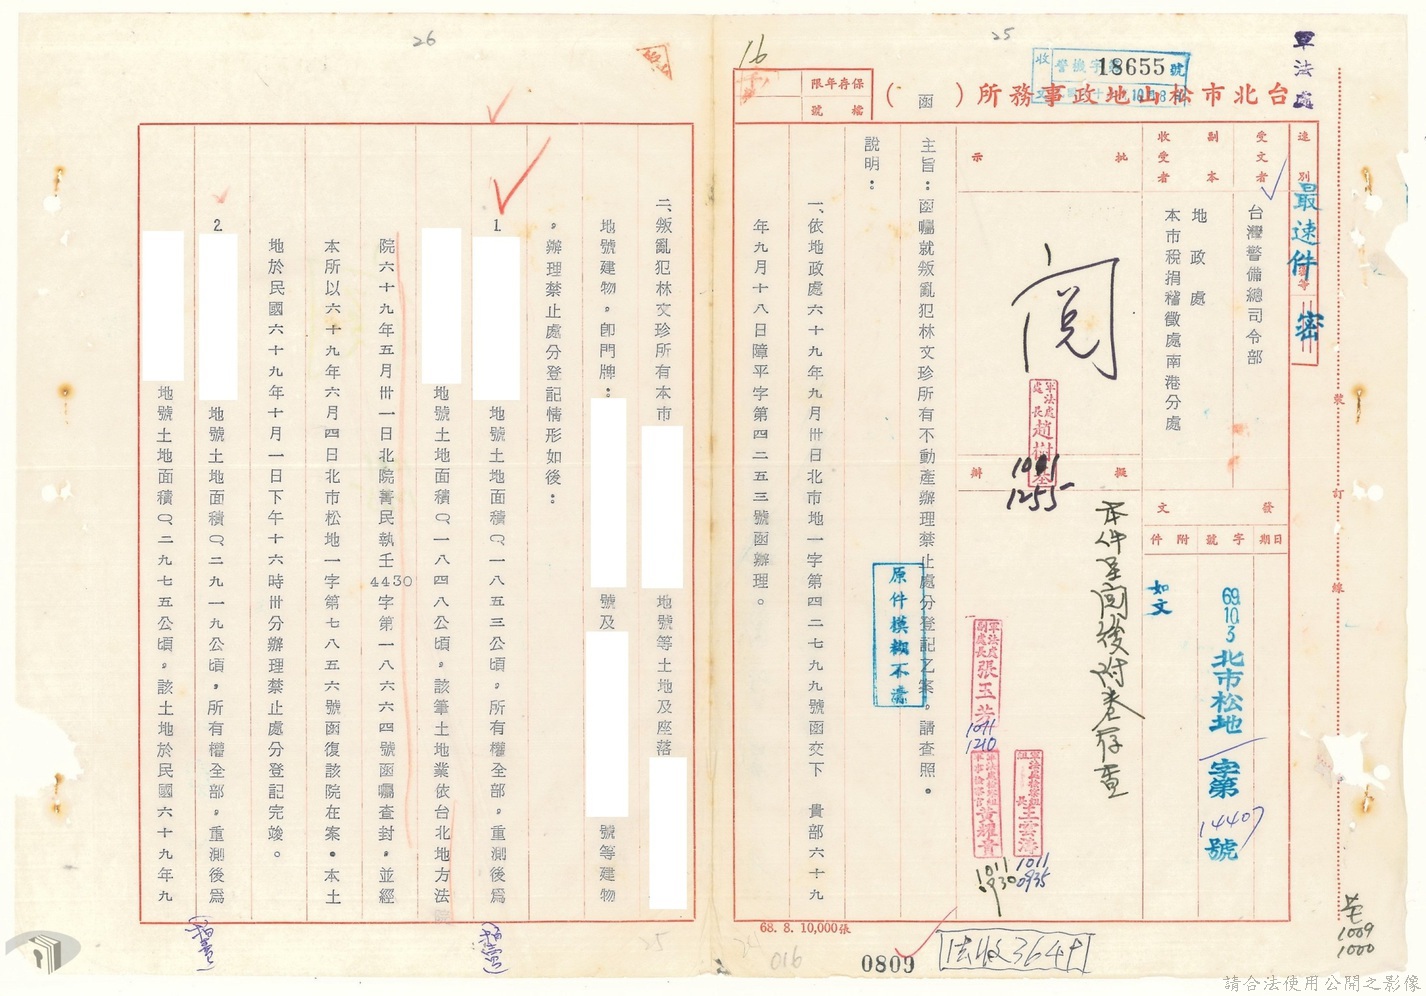 軍法處
台北市松山地政事務所（函）
收
警檢字
18655號
保存年限
檔號
16
25
26
速別
最速件
密等
密
受文者
台灣警備總司令部
副本收受者
地政處
本市稅捐稽徵處南港分處
發文
日期
字號
附件
69.10.3
北市松地一字第14407號
如文
批示
閱
軍法處處長趙樹基
1011
1255
擬辦
本件呈閱後附卷存查
軍法處副處長張玉芳
1011
1210
1011
0930
1011
0935
主旨：函囑就叛亂犯林文珍所有不動產辦理禁止處分登記乙案。請查照。
原件模糊不清
說明：
一、依地政處六十九年九月卅日北市地一字第四二七九九號函交下　貴部六十九
年九月十八日障平字第四二五三號函辦理。
二、叛亂犯林文珍所有本市　地號等土地及座落
地號建物。即門牌：　號及　號等建物
。辦理禁止處分登記情形如後：
1.　地號土地面積○、一八五三公頃。所有權全部。重測後為
地號土地面積○、一八四八公頃。該筆土地業依台北地方法
院六十九年五月卅一日北院菁民執壬4430字第一八六六四號函囑查封。並經
本所以六十九年六月四日北市松地一字第七八五六號函復該院在案。本土
地於民國六十九年十月一日下午十六時卅分辦理禁止處分登記完竣。
2.　地號土地面積○、二九一九公頃。所有權全部。重測後為
地號土地面積○、二九七五公頃。該土地於民國六十九年九
裝
訂
線
68. 8. 10,000張
0809
法收3648
24
016
25
1009
1000
請合法使用公開之影像